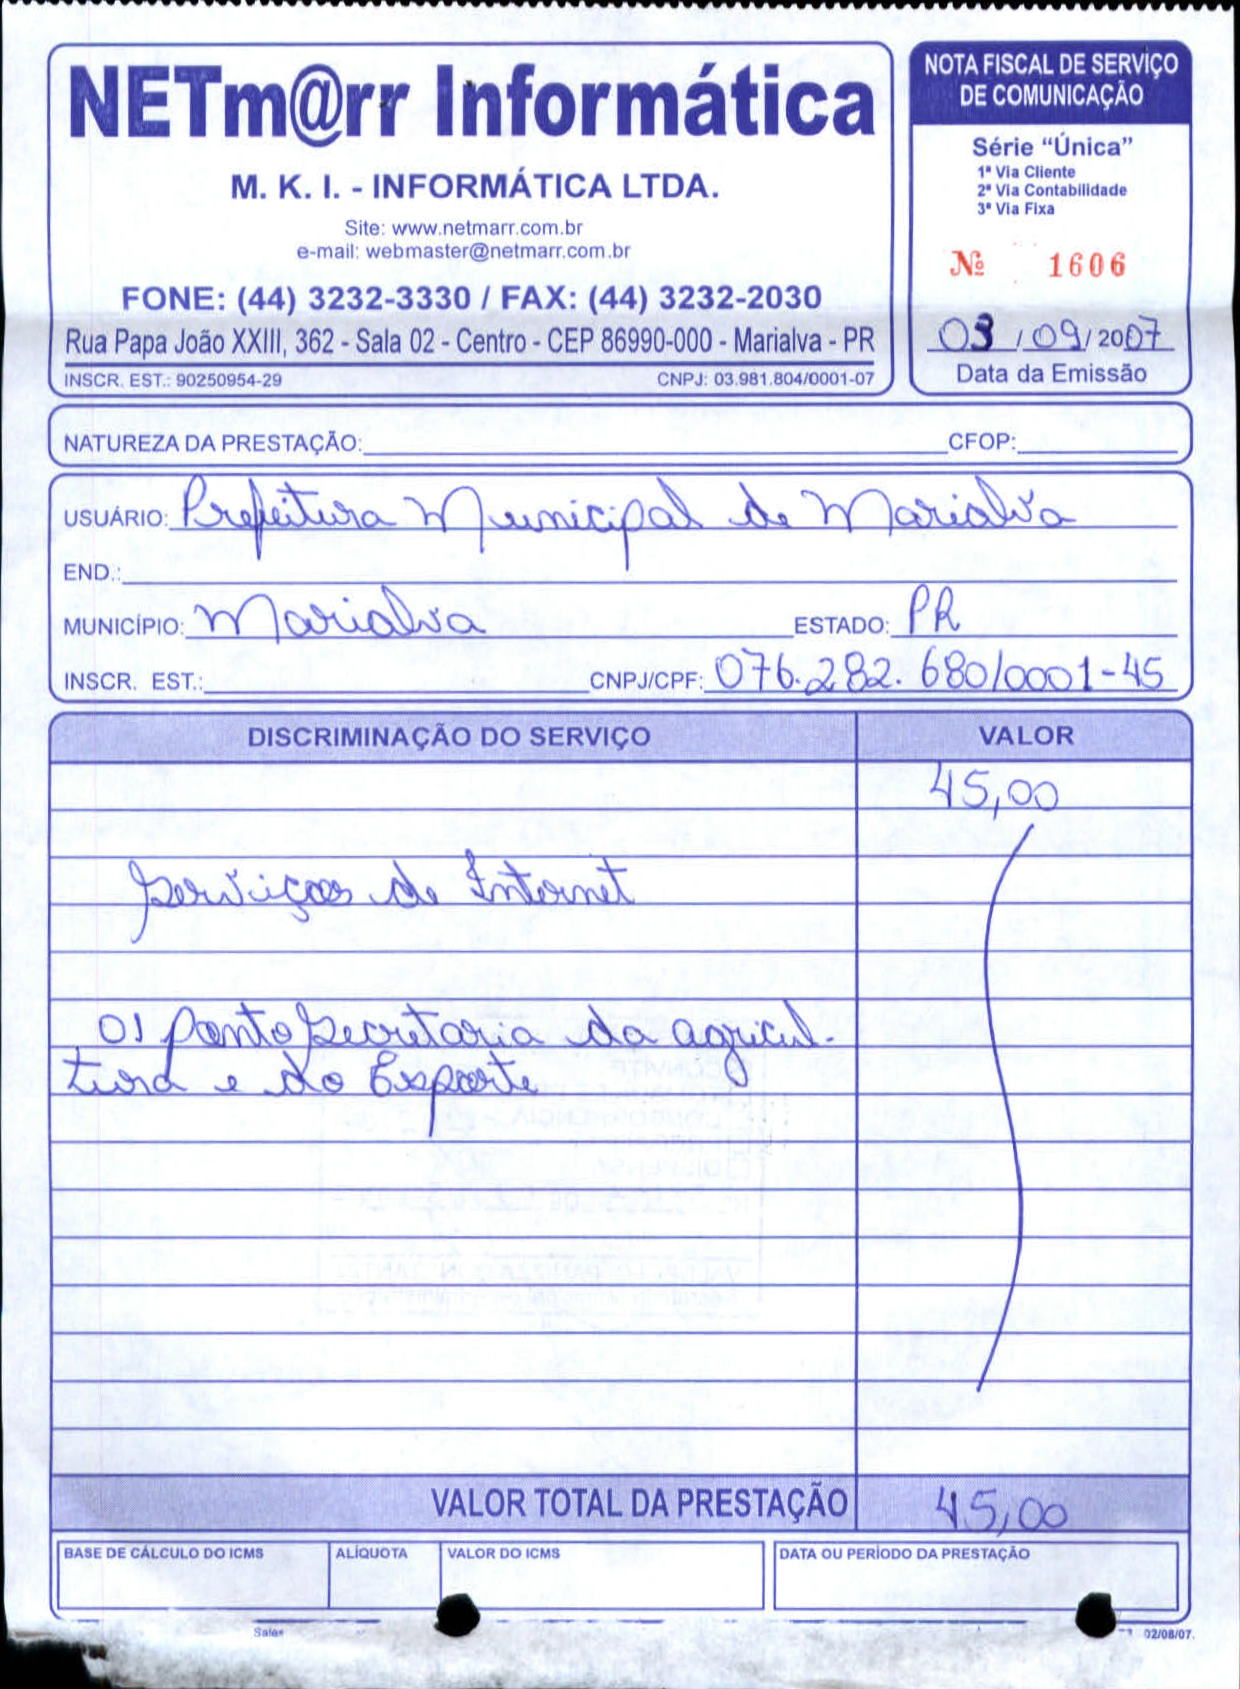 NETm@rr Informática
M. K. I. - INFORMÁTICA LTDA.
Site: www.netmarr.com.br
e-mail: webmaster@netmarr.com.br
FONE: (44) 3232-3330 / FAX: (44) 3232-2030
Rua Papa João XXIII, 362 - Sala 02 - Centro - CEP 86990-000 - Marialva - PR
INSCR. EST.: 90250954-29 CNPJ: 03.981.804/0001-07
NOTA FISCAL DE SERVIÇO
DE COMUNICAÇÃO
Série "Única"
1ª Via Cliente
2ª Via Contabilidade
3ª Via Fixa
Nº 1606
03/09/2007
Data da Emissão
NATUREZA DA PRESTAÇÃO: CFOP:
USUÁRIO: Prefeitura Municipal de Marialva
END.:
MUNICÍPIO: Marialva ESTADO: PR
INSCR. EST.: CNPJ/CPF: 076.282.680/0001-45
DISCRIMINAÇÃO DO SERVIÇO VALOR
45,00
Serviços de Internet
01 Ponto Secretaria da agricul-
tura e do Esporte
VALOR TOTAL DA PRESTAÇÃO 45,00
BASE DE CÁLCULO DO ICMS ALÍQUOTA VALOR DO ICMS DATA OU PERÍODO DA PRESTAÇÃO
02/08/07.